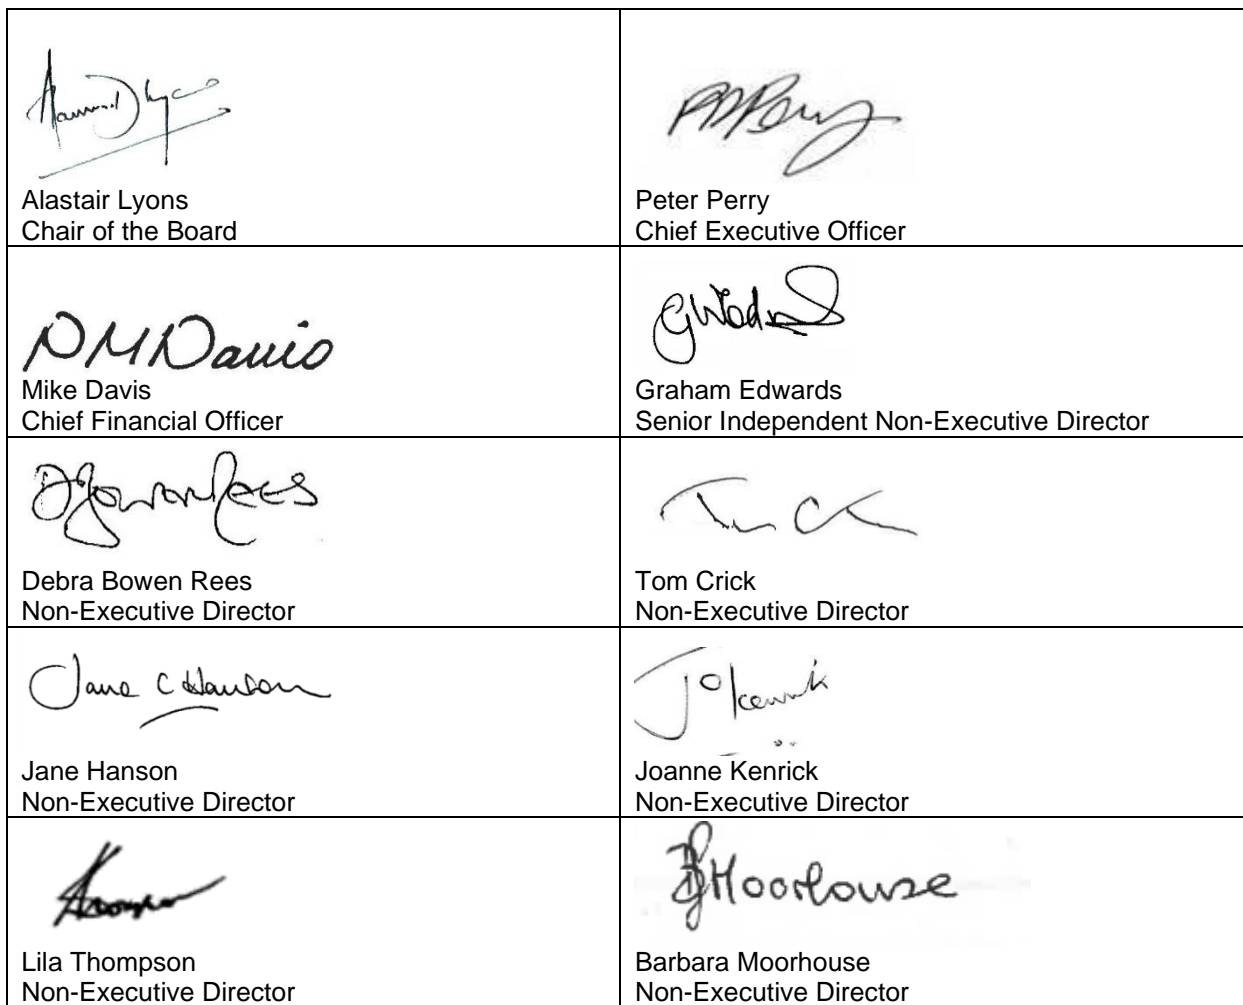 Alastair Lyons
Chair of the Board
Peter Perry
Chief Executive Officer
Mike Davis
Chief Financial Officer
Graham Edwards
Senior Independent Non-Executive Director
Debra Bowen Rees
Non-Executive Director
Tom Crick
Non-Executive Director
Jane C Hanson
Jane Hanson
Non-Executive Director
Joanne Kenrick
Non-Executive Director
Lila Thompson
Non-Executive Director
Moorhouse
Barbara Moorhouse
Non-Executive Director